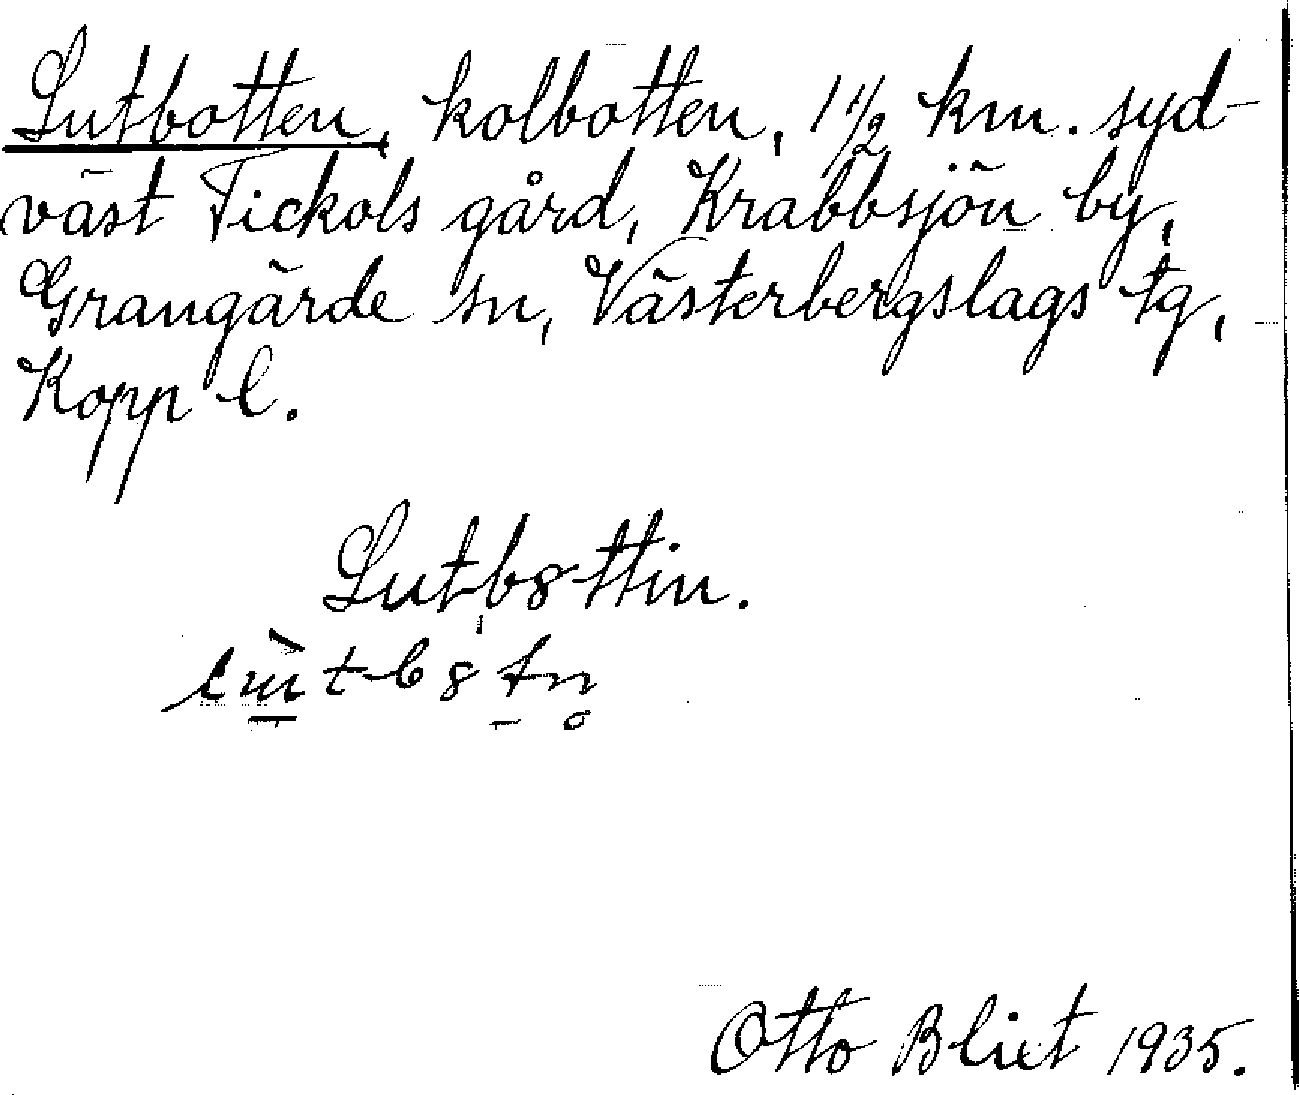 Lutbotten, kolbotten, 1 1/2 km. syd-
väst Tickols gård, Krabbsjön by,
Grangärde sn, Västerbergslags tg,
Kopp l.
Lutb8ttin.
Otto Blixt 1935.